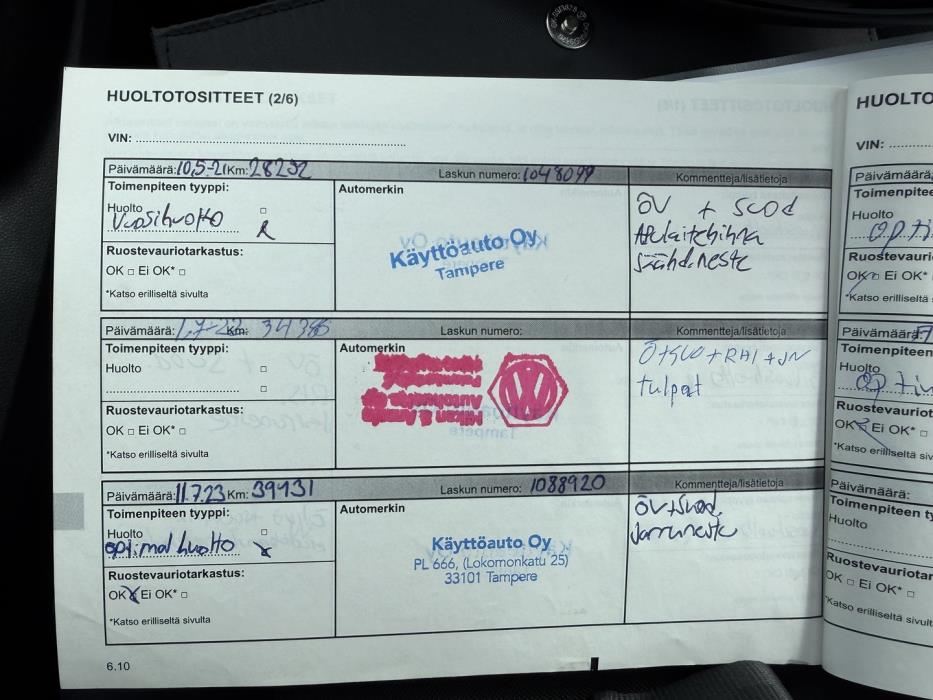 HUOLTOTOSITTEET (2/6)
VIN:
Päivämäärä: 10,5-21 Km: 28292 Laskun numero: 1048099 Kommentteja/lisätietoja
Toimenpiteen tyyppi:
Automerkin
Huolto
Vuosihuolto
Ruostevauriotarkastus:
OK □ Ei OK* □
*Katso erilliseltä sivulta
Käyttöauto Oy
Tampere
ÖV + Suod
Päivämäärä: 1,7-22 Km: 34386 Laskun numero: Kommentteja/lisätietoja
Toimenpiteen tyyppi:
Automerkin
Huolto
Ruostevauriotarkastus:
OK □ Ei OK* □
*Katso erilliseltä sivulta
tulpat
Päivämäärä: 11.7.23 Km: 39931 Laskun numero: 1088920 Kommentteja/lisätietoja
Toimenpiteen tyyppi:
Automerkin
Huolto
optimal huolto
Ruostevauriotarkastus:
OK Ei OK* □
*Katso erilliseltä sivulta
Käyttöauto Oy
PL 666, (Lokomonkatu 25)
33101 Tampere
ÖV+Suod.
Jarruneste
6.10
HUOLTO
VIN:
Päivämäärä:
Toimenpiteen
Huolto
Ruostevauri
OK Ei OK*
*Katso erilliseltä
Päivämäärä:
Toimenpiteen
Huolto
Ruostevauriot
OK Ei OK* □
*Katso erilliseltä siv
Päivämäärä:
Toimenpiteen ty
Huolto
Ruostevauriotar
OK □ Ei OK* □
*Katso erilliseltä sivu